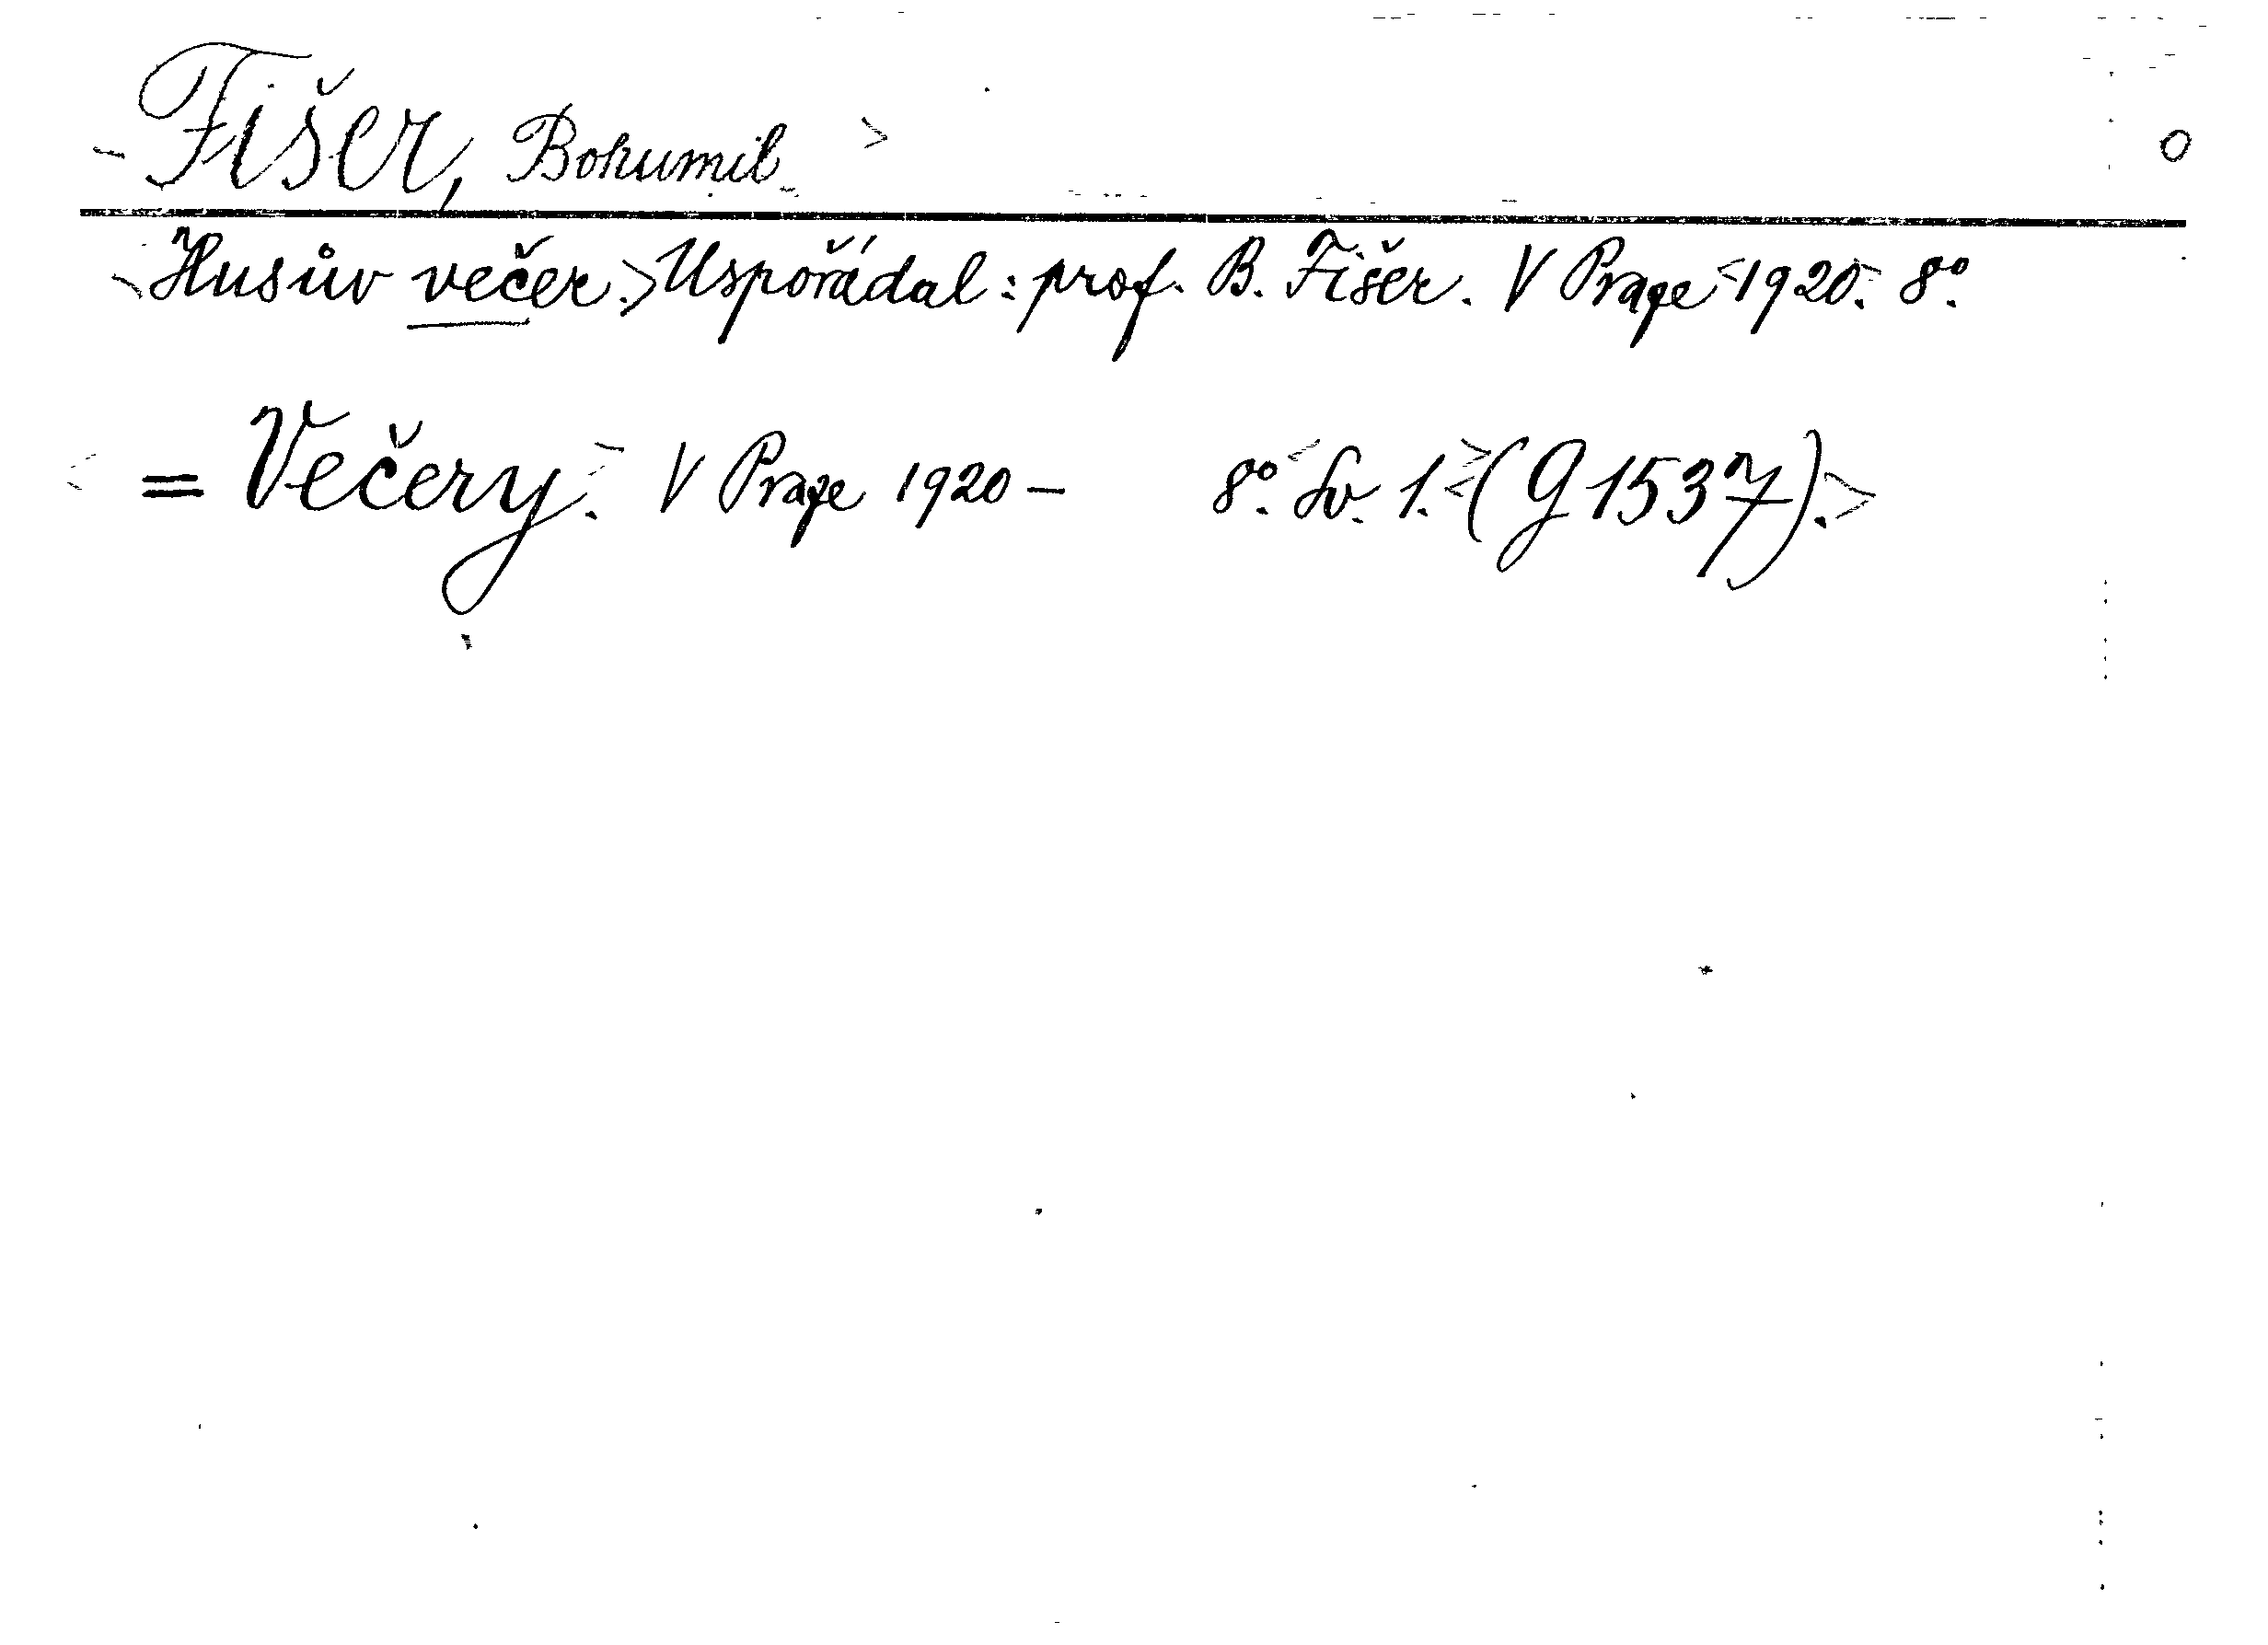 Fišer, Bohumil > o
Husův večer.> Uspořádal: prof. B. Fišer. V Praze <1920. 8º.
< = Večery. V Praze 1920 – 8º. Sv. 1. > < (G 1537). >